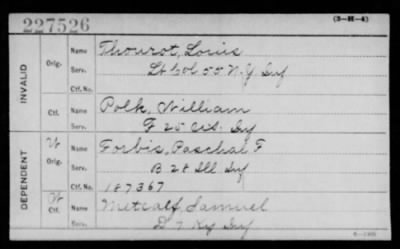 227526
(3-H-4)
INVALID
Orig.
Name Thourot, Louis
Serv. Lt Col 55 N.Y Inf
Ctf. No.
Ctf.
Name Polk, William
Serv. F 25 Cis. Inf
DEPENDENT
W
Orig.
Name Forbis, Paschal F
Serv. B 28 Ill Inf
Ctf. No. 187367
W
Ctf.
Name Metcalf, Samuel
Serv. D 7 Ky Inf